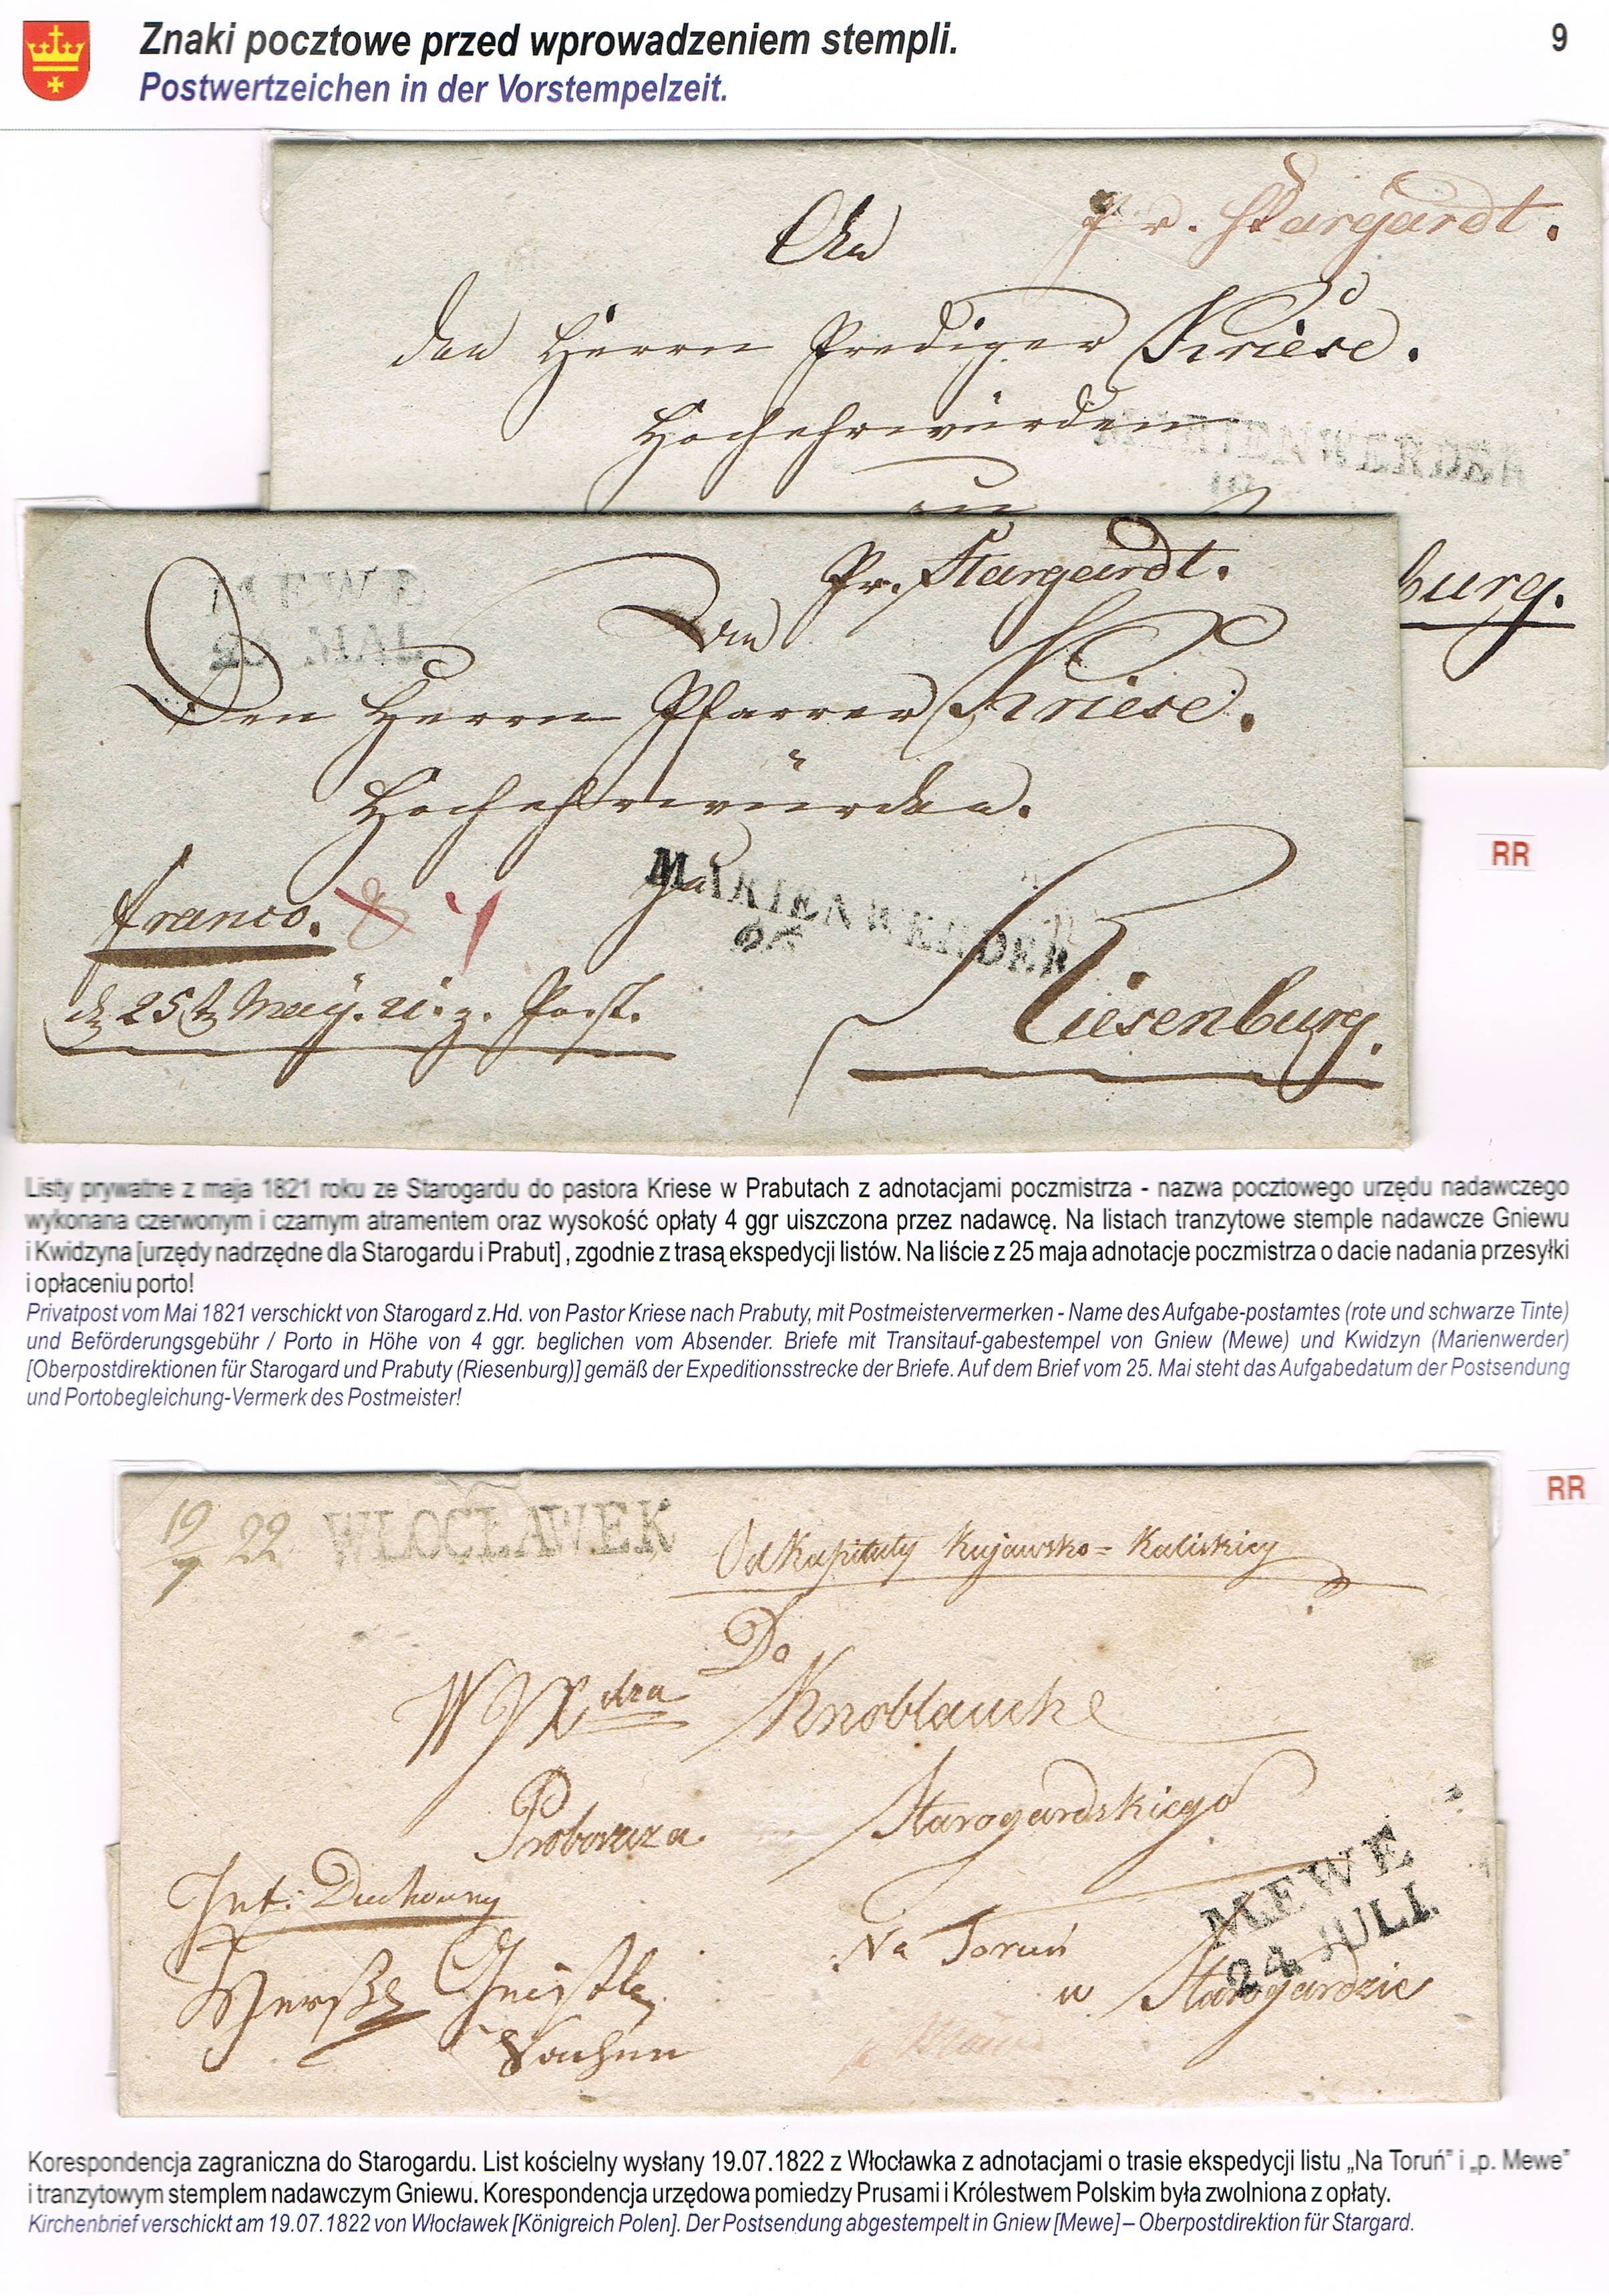 Znaki pocztowe przed wprowadzeniem stempli.
9
Postwertzeichen in der Vorstempelzeit.
Pr. Stargardt.
An
den Herrn Prediger Kriese.
Hochehrwürden
MARIENWERDER
19
zu
burg.
MEWE
25 MAI.
Pr. Stargardt.
An
Den Herrn Pfarrer Kriese.
Hochehrwürden.
franco. 4
zu
MARIENWERDER
26
Riesenburg.
25 May. 21. z. Post.
RR
Listy prywatne z maja 1821 roku ze Starogardu do pastora Kriese w Prabutach z adnotacjami poczmistrza - nazwa pocztowego urzędu nadawczego
wykonana czerwonym i czarnym atramentem oraz wysokość opłaty 4 ggr uiszczona przez nadawcę. Na listach tranzytowe stemple nadawcze Gniewu
i Kwidzyna [urzędy nadrzędne dla Starogardu i Prabut] , zgodnie z trasą ekspedycji listów. Na liście z 25 maja adnotacje poczmistrza o dacie nadania przesyłki
i opłaceniu porto!
Privatpost vom Mai 1821 verschickt von Starogard z.Hd. von Pastor Kriese nach Prabuty, mit Postmeistervermerken - Name des Aufgabe-postamtes (rote und schwarze Tinte)
und Beförderungsgebühr / Porto in Höhe von 4 ggr. beglichen vom Absender. Briefe mit Transitauf-gabestempel von Gniew (Mewe) und Kwidzyn (Marienwerder)
[Oberpostdirektionen für Starogard und Prabuty (Riesenburg)] gemäß der Expeditionsstrecke der Briefe. Auf dem Brief vom 25. Mai steht das Aufgabedatum der Postsendung
und Portobegleichung-Vermerk des Postmeister!
RR
19/7 22 WŁOCŁAWEK
Od Kapituły Kujawsko = Kaliskiey
Do
WJX dza Knoblauche
Proboszcza Starogardskiego
Int: Duchowny
MEWE
24 JULI.
Na Toruń
w Starogardzie
Geistle
Sachen
Korespondencja zagraniczna do Starogardu. List kościelny wysłany 19.07.1822 z Włocławka z adnotacjami o trasie ekspedycji listu „Na Toruń" i „p. Mewe"
i tranzytowym stemplem nadawczym Gniewu. Korespondencja urzędowa pomiedzy Prusami i Królestwem Polskim była zwolniona z opłaty.
Kirchenbrief verschickt am 19.07.1822 von Włocławek [Königreich Polen]. Der Postsendung abgestempelt in Gniew [Mewe] – Oberpostdirektion für Stargard.